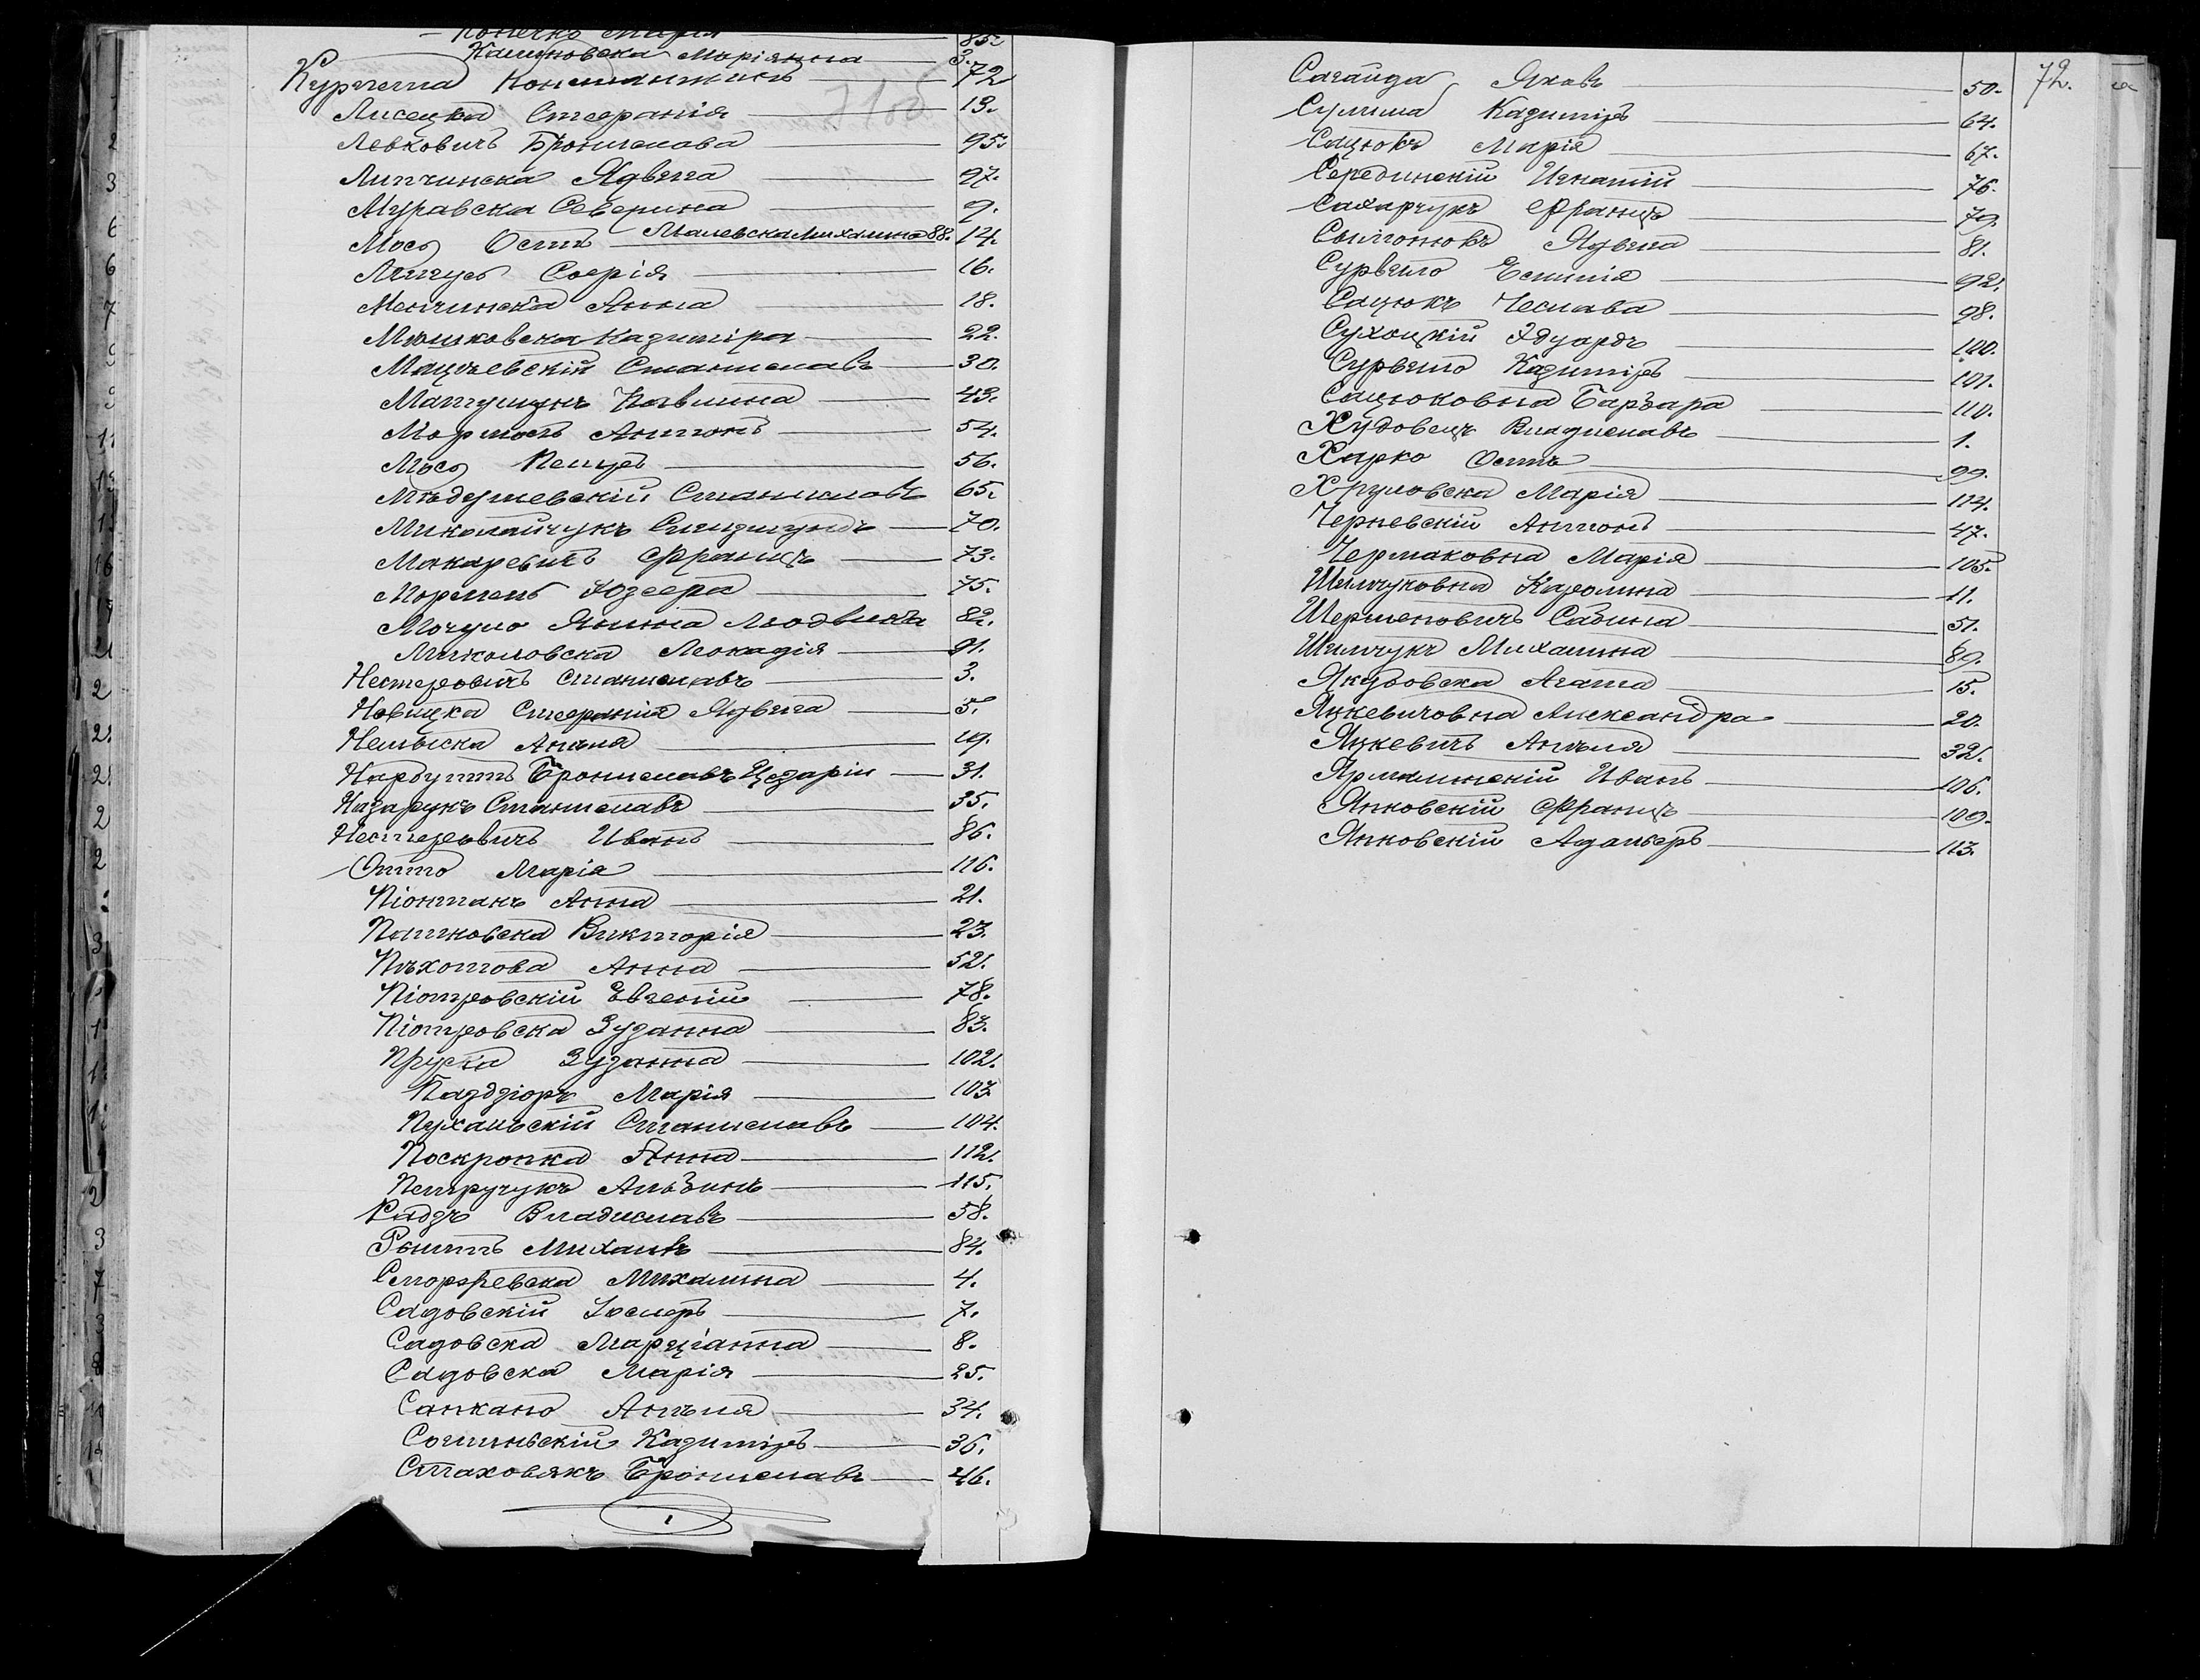 Конечко Марія 85.
Калиновска Маріянна 3.
Курчета Константинъ 72
71об
Лисецка Стефанія 13.
Левковичъ Брониславa 95.
Липчинска Ядвига 97.
Муравска Северина 9.
Малевска Михалина 88.
Мось Осипъ 14.
Мигусь Софія 16.
Менчинска Анна 18.
Мюшковска Казиміра 22.
Мацѣевскій Станиславъ 30.
Матушукъ Павлина 43.
Мормоль Антонъ 54.
Мось Петръ 56.
Мѣдушевскій Станиславъ 65.
Миколайчукъ Сигизмундъ 70.
Макаревичъ Францъ 73.
Мормель Юзефа 75.
Мочуло Янина Людвика 82.
Миколовска Леокадія 91.
Нестеровичъ Станиславъ 3.
Новицка Стефанія Ядвига 5.
Нелиска Анеля 19.
Нарбуттъ Брониславъ Цезарій 31.
Назарукъ Станиславъ 35.
Нестеровичъ Иванъ 86.
Отто Марія 116.
Піонтакъ Анна 21.
Пашковска Викторія 23.
Пѣхотова Анна 52.
Піотровскій Евгеній 78.
Піотровска Зузанна 83.
Пруска Зузанна 102.
Паздзіоръ Марія 103
Пухальскій Станиславъ 104.
Поскропка Анна 112.
Петручукъ Альбинъ 115.
Радзъ Владиславъ 58.
Рениттъ Михаилъ 84.
Сморжевска Михалина 4.
Садовскій Іосифъ 7.
Садовска Марціанна 8.
Садовска Марія 25.
Санкано Анѣля 34.
Согиньскій Казиміръ 36.
Стаховякъ Брониславъ 46.
72.
Сагайда Яковъ 50.
Сулима Казиміръ 64.
Сацюкъ Марія 67.
Серединскій Игнатій 76.
Сахарчукъ Францъ 79.
Симонюкъ Ядвига 81.
Сурвило Емилія 92.
Сацюкъ Чеслава 98.
Сухоцкій Эдуардъ 100.
Сурвило Казиміръ 101.
Сацюковна Барбара 110.
Худовецъ Владиславъ 1.
Хирко Осипъ 99.
Хруловска Марія 114.
Черневскій Антонъ 47.
Чермаковна Марія 105.
Шимчуковна Каролина 11.
Шермановичъ Сабина 51.
Шимчукъ Михалина 89.
Якубовска Агата 15.
Яцкевичовна Александра 20.
Яцкевичъ Анѣля 32.
Ярмалинскій Иванъ 106.
Янковскій Францъ 109.
Янковскій Адольфъ 113.